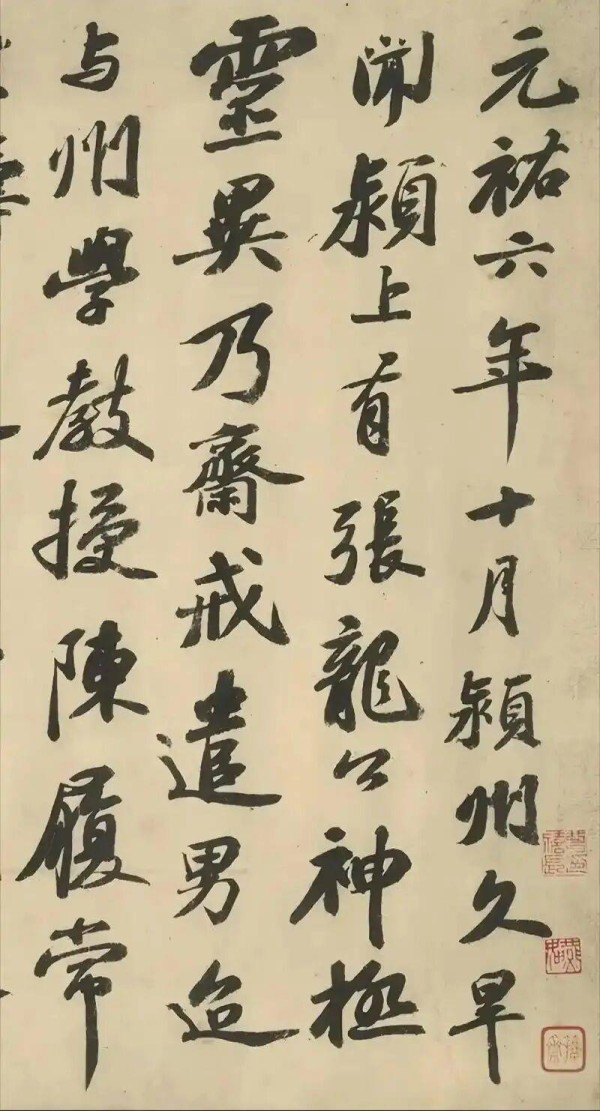 元祐六年十月潁州久旱
聞潁上有張龍公神極
靈異乃齋戒遣男迨
与州學教授陳履常